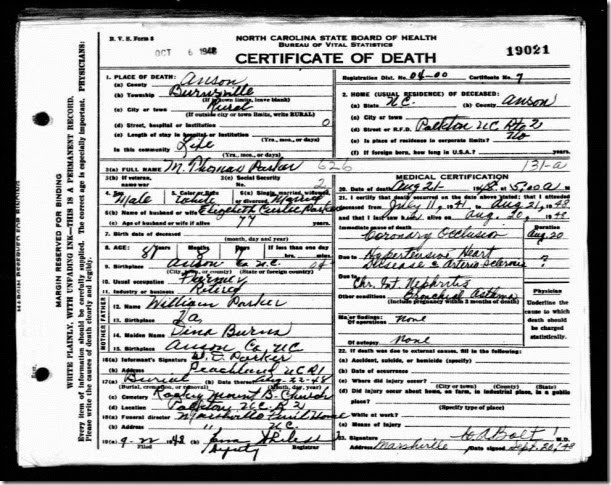 N. C. S. Form 8
OCT 6 1948
NORTH CAROLINA STATE BOARD OF HEALTH
BUREAU OF VITAL STATISTICS
CERTIFICATE OF DEATH
19021
Registration Dist. No. 04-00 Certificate No. 7
1. PLACE OF DEATH:
(a) County Anson
(b) Township Burnsville
(If in town limits, leave blank)
(c) City or town Rural
(If outside city or town limits, write RURAL)
(d) Street, hospital or institution 0
(e) Length of stay in hospital or institution
(Yrs., mos., or days)
In this community Life
(Yrs., mos., or days)
2. HOME (USUAL RESIDENCE) OF DECEASED:
(a) State N.C. (b) County Anson
(c) City or town
(d) Street or R.F.D. Polkton NC Rt 2
(e) Is place of residence in corporate limits? No
(f) If foreign born, how long in U.S.A.?
3(a) FULL NAME M. Thomas Parker 526 131-a
3(b) If veteran, name war
3(c) Social Security No.
4. Sex Male
5. Color or Race White
6(a) Single, married, widowed, or divorced Married
6(b) Name of husband or wife Elizabeth Parker
6(c) Age of husband or wife if alive 77
7. Birth date of deceased
(month, day and year)
8. AGE: Years 81 Months 8 Days 7 If less than one day hrs. min.
9. Birthplace Anson Co N.C.
(City, town, or county) (State or foreign country)
10. Usual occupation Farmer
11. Industry or business Retired
FATHER
12. Name William Parker
13. Birthplace Va.
MOTHER
14. Maiden Name Tina Burns
15. Birthplace Anson Co, NC
16(a) Informant's Signature Parker
(b) Address Peachland NC R1
17(a) Burial (b) Date thereof Aug-22-48
(Burial, cremation, or removal) (Month, day, year)
(c) Cemetery Rocky Mount B. Church
(d) Location Polkton N.C. R 2
18(a) Funeral director Marshville Funl Home
(b) Address " N.C.
19(a) 9-22 1948 (b)
Filed Deputy Registrar
MEDICAL CERTIFICATION
20. Date of death Aug 21- 1948 5:00 a.m.
21. I certify that death occurred on the date above stated; that I attended deceased from July 11, 1941 Aug 21, 1948
and that I last saw him alive on Aug. 20, 1948
Immediate cause of death Duration
Coronary Occlusion Aug 20
Due to Hypertensive Heart
Disease & Arterio Sclerosis ?
Due to Chr. Int. Nephritis
Other conditions Bronchial Asthma
(Include pregnancy within 3 months of death)
Major Findings:
Of operations none
Of autopsy none
Physician
Underline the cause to which death should be charged statistically
22. If death was due to external causes, fill in the following:
(a) Accident, suicide, or homicide (specify)
(b) Date of occurrence
(c) Where did injury occur?
(City or town) (County) (State)
(d) Did injury occur about home, on farm, in industrial place, in a public place?
(Specify type of place)
While at work?
(e) Means of injury
23. Signature M.D.
Address Marshville Date signed Sept. 20, 48
MARGIN RESERVED FOR BINDING
WRITE PLAINLY, WITH UNFADING INK—THIS IS A PERMANENT RECORD.
Every item of information should be carefully supplied. The correct age is especially important. PHYSICIANS: Please write the causes of death clearly and legibly.